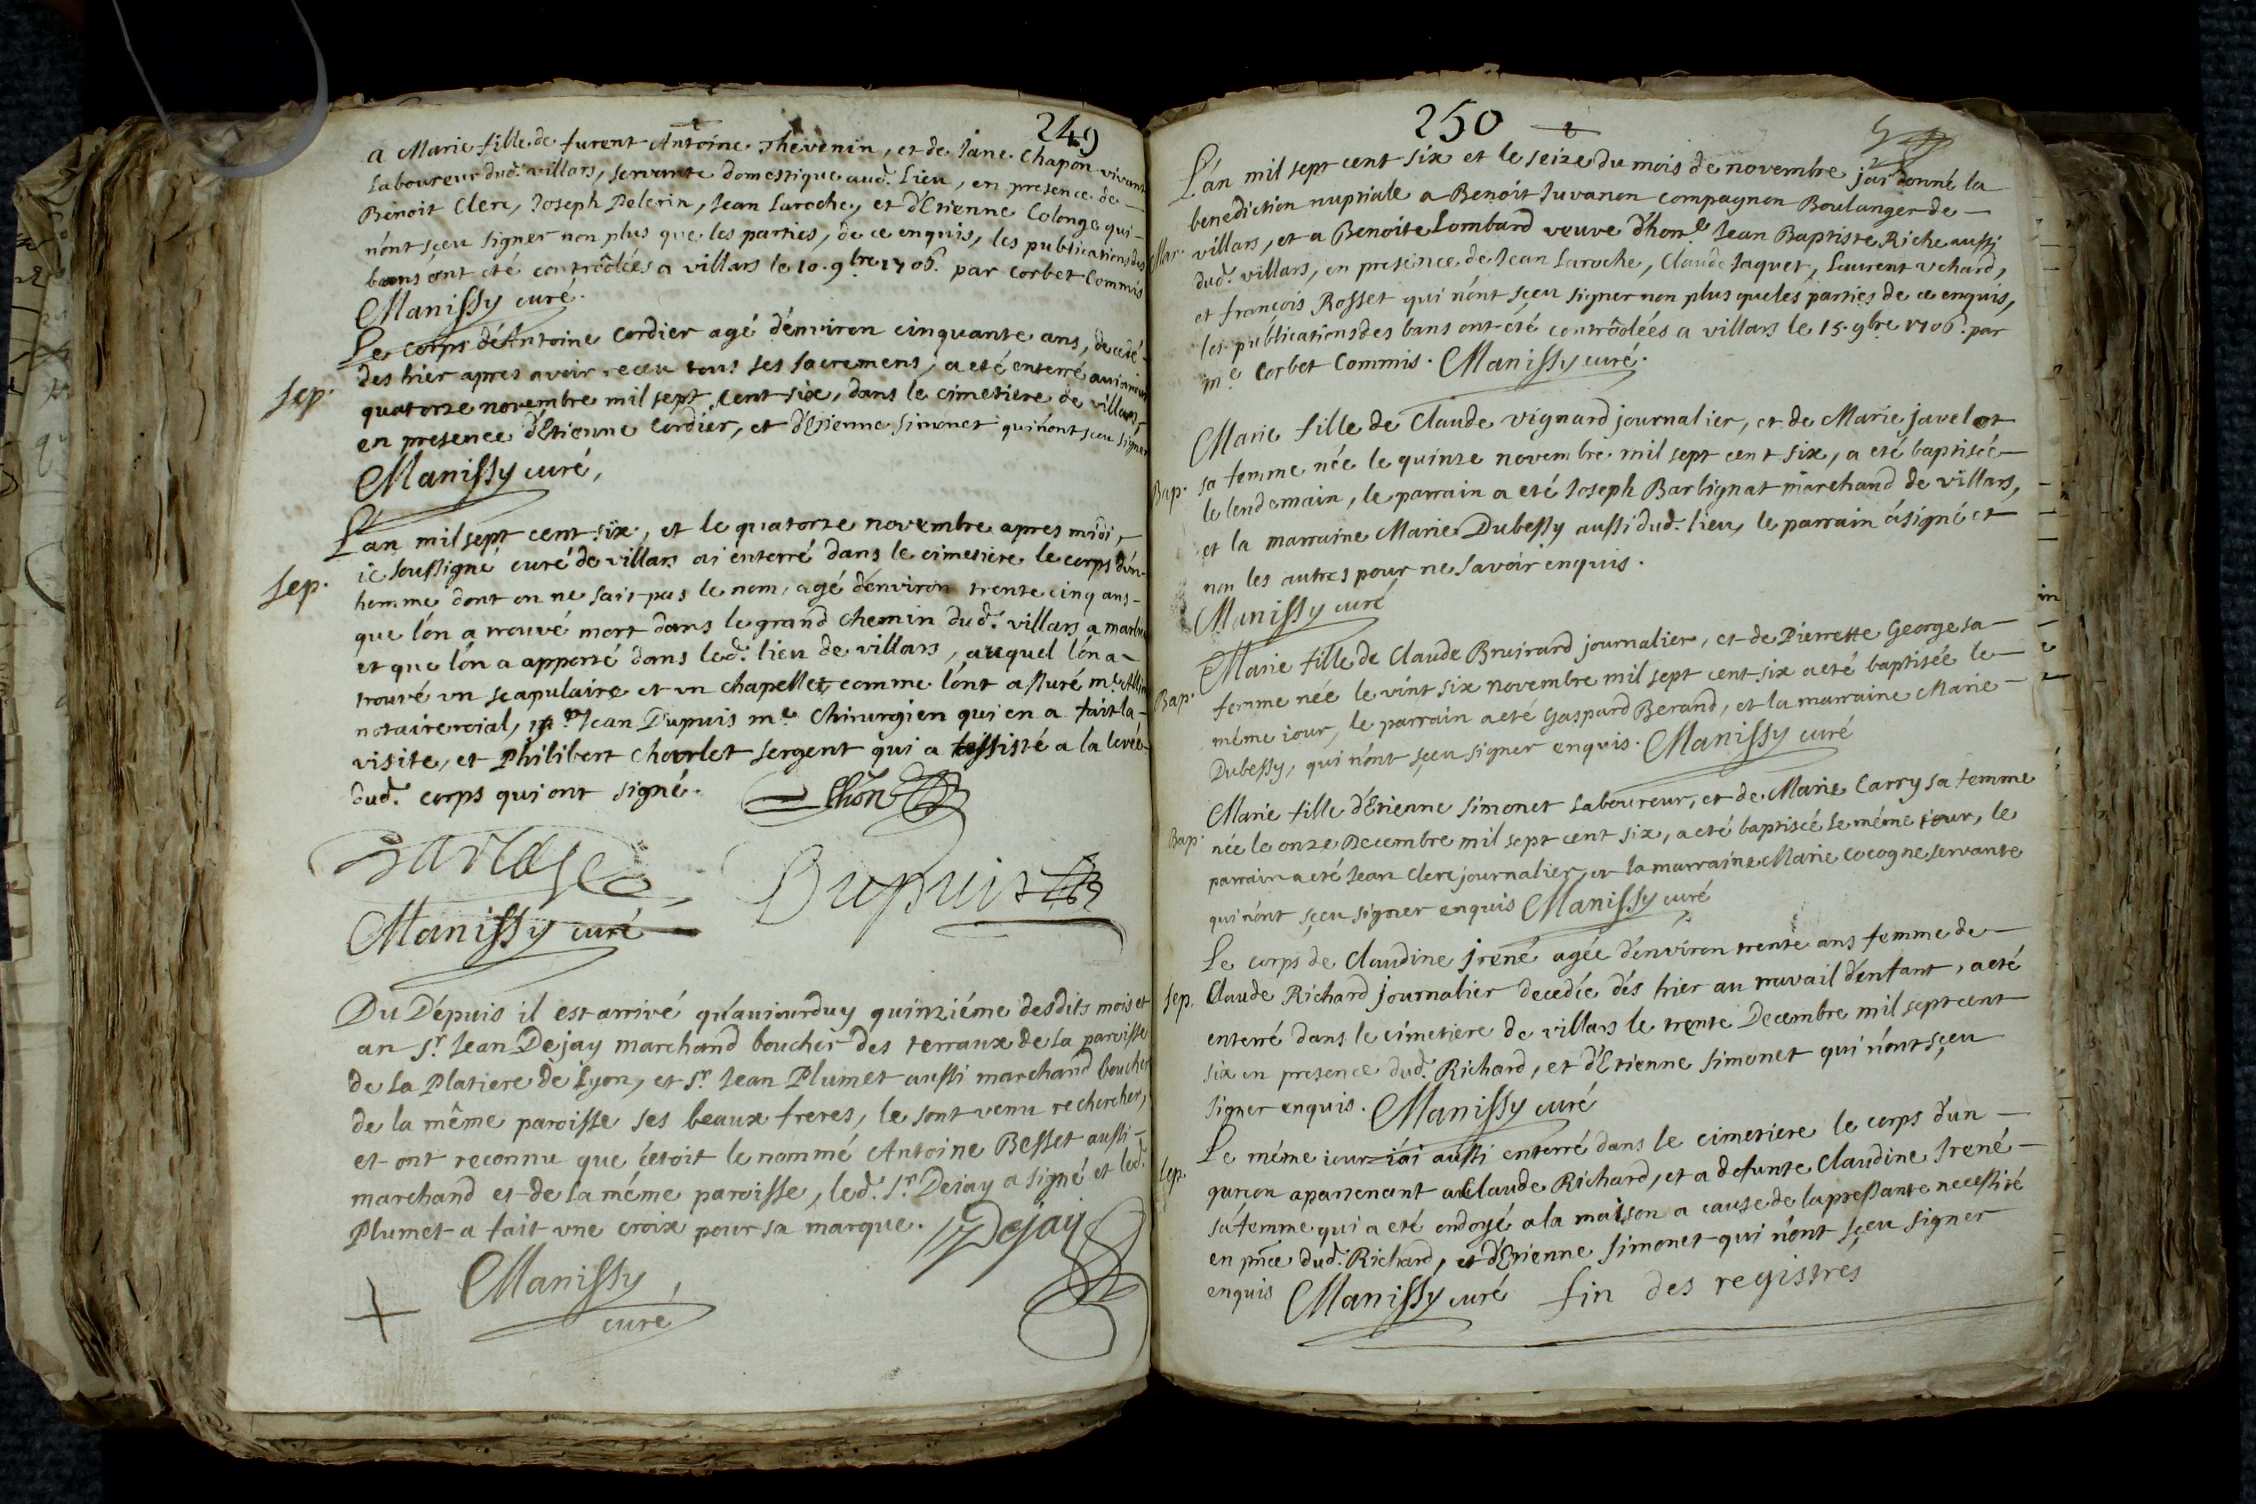 249
a Marie fille de furent Antoine Thevenin, et de Jane Chapon vivant
laboureur dud. villars, servante domestique aud. lieu, en presence de
Benoit Clerc, Joseph Pelerin, Jean Laroche, et d'Etienne Cologe qui
n'ont sçeu signer non plus que les parties, de ce enquis, les publications des
bans ont eté contrôlées a villars le 10. 9bre 1706. par Corbet Commis
Manissy curé.
sep.
Le corps d'Antoine Cordier agé d'environ cinquante ans, decedé
des hier apres avoir receu tous ses sacremens, a eté enterré
quatorze novembre mil sept cent six, dans le cimetiere de villars,
en presence d'Etienne Cordier, et d'Etienne Simonet qui n'ont sçeu signer
Manissy curé,
sep.
L'an mil sept cent six, et le quatorze novembre apres midi,
ie soussigné curé de villars ai enterré dans le cimetiere le corps d'un
homme dont on ne sait pas le nom, agé d'environ trente cinq ans
que l'on a trouvé mort dans le grand chemin dud. villars a
et que l'on a apporté dans led. lieu de villars, auquel l'on a
trouvé un scapulaire et un chapellet comme l'ont assuré me
notaire roial, Jean Dupuis me Chirurgien qui en a fait la
visite, et Philibert Chorlet sergent qui a assisté a la levée
dud. corps qui ont signé.
Manissy curé Dupuis
Du Dépuis il est arrivé qu'auiourduy quinziéme desdits mois et
an Sr. Jean Dejay marchand boucher des terraux de la paroisse
de la Platiere de Lyon, et Sr. Jean Plumet aussi marchand boucher
de la même paroisse ses beaux freres, le sont venu rechercher,
et ont reconnu que c'etoit le nommé Antoine Besset aussi
marchand et de la méme paroisse, led. Sr. Dejay a signé et led.
Plumet a fait une croix pour sa marque. Dejay
Manissy
curé
250
L'an mil sept cent six et le seize du mois de novembre j'ai donné la
benediction nuptiale a Benoit Juvanon compagnon Boulanger de
Mar. villars, et a Benoite Lombard veuve d'hon.e Jean Baptiste Riche aussi
dud. villars, en presence de Jean Laroche, Claude Jaquet, Laurent Vchard,
et françois Rosset qui n'ont sçeu signer non plus que les parties de ce enquis,
les publications des bans ont eté contrôolées a villars le 15. 9bre 1706. par
me Corbet Commis. Manissy curé.
Marie fille de Claude Vignard journalier, et de Marie javelot
Bap. sa femme née le quinze novembre mil sept cent six, a eté baptisée
le lendemain, le parrain a eté Joseph Barbignat marchand de villars,
et la marraine Marie Dubessy aussi dud. lieu, le parrain a signé et
non les autres pour ne savoir enquis.
Manissy curé
Marie fille de Claude Bruirard journalier, et de Pierrette George sa
Bap. femme née le vint six novembre mil sept cent six a eté baptisée le
méme iour, le parrain a eté Gaspard Berand, et la marraine Marie
Dubessy, qui n'ont sçeu signer enquis. Manissy curé
Marie fille d'Etienne Simonet laboureur, et de Marie Carry sa femme
Bap. née le onze Decembre mil sept cent six, a eté baptiséé le méme iour, le
parrain a eté Jean Clerc journalier, et la marraine Marie Cocogne servante
qui n'ont sçeu signer enquis Manissy curé
Le corps de Claudine Irené agée d'environ trente ans femme de
sep. Claude Richard journalier decedée dés hier au travail d'enfant, a eté
enterré dans le cimetiere de villars le trente Decembre mil sept cent
six en presence dud. Richard, et d'Etienne Simonet qui n'ont sçeu
signer enquis. Manissy curé
Le méme iour i'ai aussi enterré dans le cimetiere le corps d'un
sep. garçon apartenant a Claude Richard, et a defunte Claudine Irené
sa femme qui a eté ondoyé a la maison a cause de la pressante necessité
en pñce dud. Richard, et d'Etienne Simonet qui n'ont sçeu signer
enquis Manissy curé fin des registres